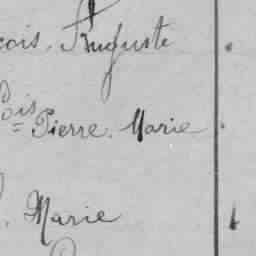 çois, Auguste
çois Pierre, Marie
Marie